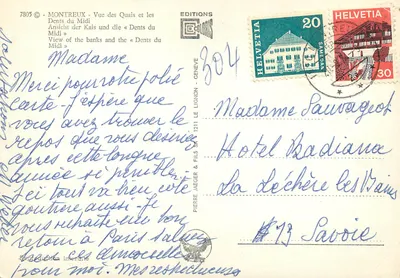 7805 © – MONTREUX – Vue des Quais et les
Dents du Midi
Ansicht der Kais und die « Dents du
Midi »
View of the banks and the « Dents du
Midi »
EDITIONS
304
HELVETIA
20
HELVETIA
30
Madame
Merci pour votre jolie
carte - J'espère que
vous avez trouver le
repos que vous désirez
après cette longue
année si pénible
Ici tout va bien
goutière aussi - Je
vous souhaite un bon
retour à Paris
pour moi.
1211 LE LIGNON - GENÈVE
Madame Sauvageot
Hotel Radiana
La Léchère les Bains
73 Savoie